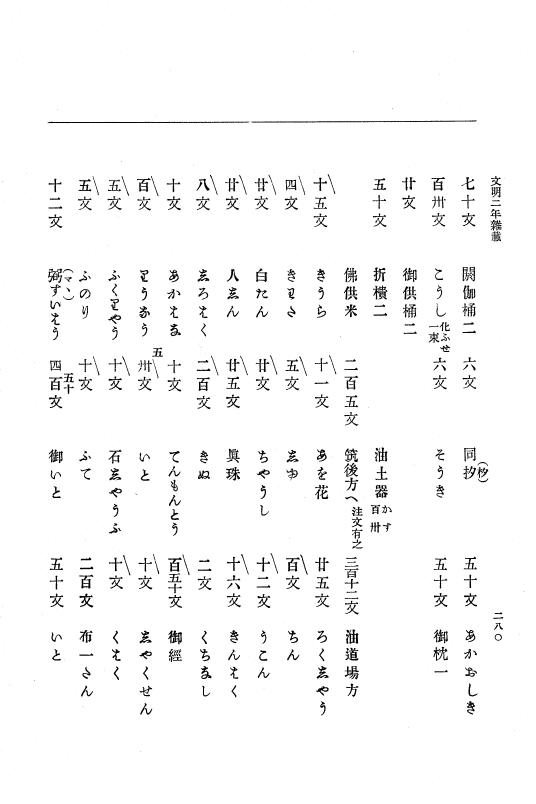 文明二年雜載
二八〇
七十文 閼伽桶二 六文 同汐(杪) 五十文 あかおしき
百卅文 こうし 化ふせ一束 六文 そうき 五十文 御枕一
廿文 御供桶二
五十文 折櫃二 油土器 かす百卅
佛供米 二百五文 筑後方へ 注文有之 三百十二文 油道場方
十五文 きうら 十一文 あを花 廿五文 ろくしやう
四文 きりさ 五文 百文 ちん
廿文 白たん 廿文 ちやうし 十二文 うこん
廿文 人しん 廿五文 眞珠 十六文 きんはく
八文 しろはく 二百文 きぬ 二文 くちなし
十文 あかはな 十文 てんもんとう 百五十文 御經
百文 りうなう 卅五文 いと 十文 しやくせん
五文 ふくりやう 十文 石しやうふ 十文 くはく
五文 ふのり 十文 ふて 二百文 布一たん
十二文 弼(マン)すいはう 四百五十文 御いと 五十文 いと